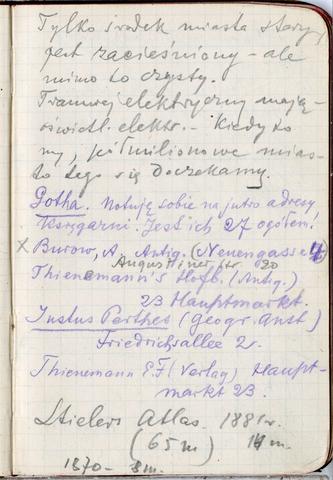 Tylko środek miasta stary
jest zacieśniony - ale
mimo to czysty.
Tramwaj elektryczny mają -
oświetl. elektr. - Kiedyż to
my, półmilionowe mias-
to tego się doczekamy.
Gotha. Notuję sobie na jutro adresy
księgarni. Jest ich 27 ogółem!
x Burow, A. Antig. (Neuengasse 4)
Augustinerstr 20
Thienemann's Hofb. (Antig.)
23 Hauptmarkt.
Justus Perthes (Geogr. Anst)
Friedrichsallee 2.
Thienemann E.F (Verlag) Haupt-
markt 23.
Stielers Atlas. 1881 r.
(65 m) 14 m.
1870 - 8 m.